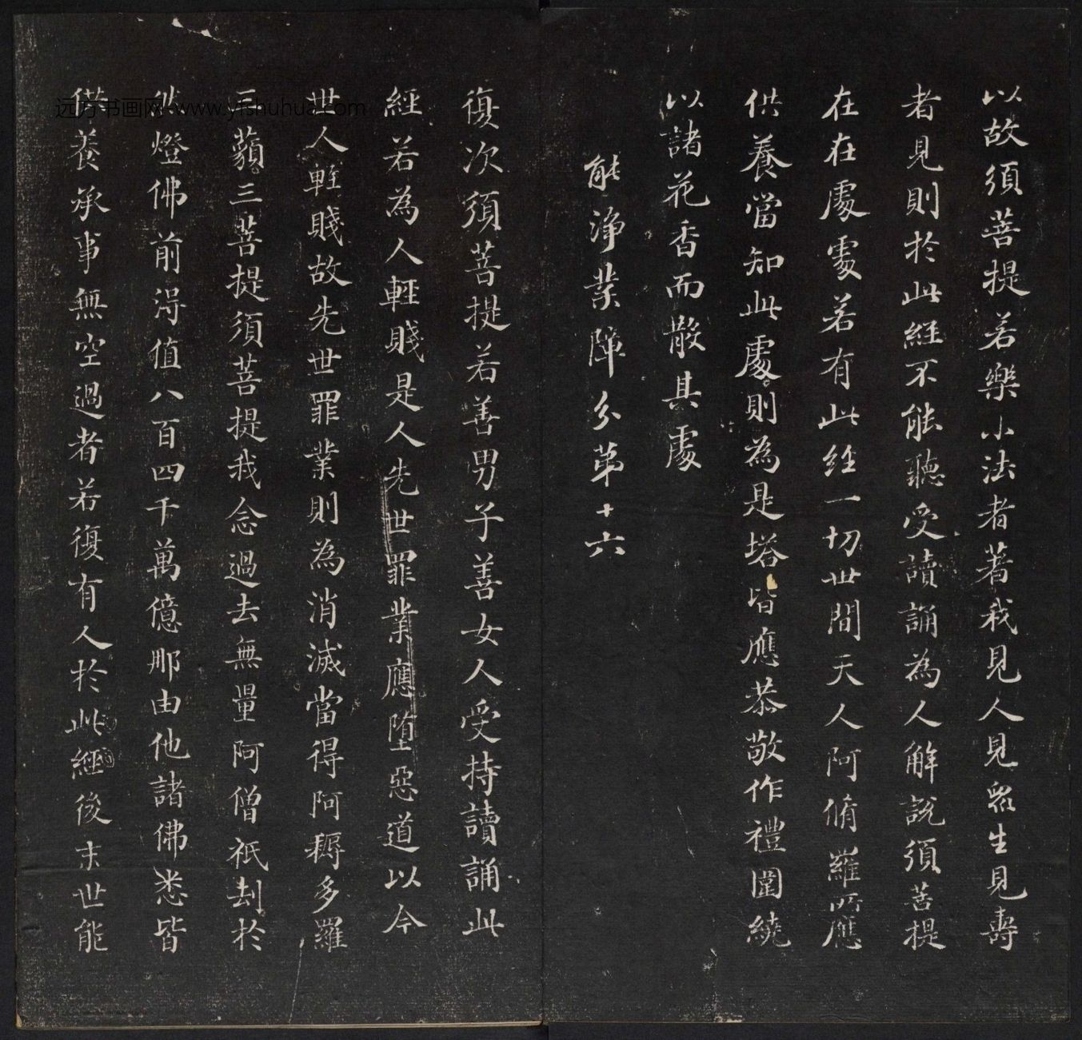 以故須菩提若樂小法者著我見人見眾生見壽
者見則於此經不能聽受讀誦為人解說須菩提
在在處處若有此經一切世間天人阿脩羅所應
供養當知此處則為是塔皆應恭敬作禮圍繞
以諸花香而散其處
能淨業障分第十六
復次須菩提若善男子善女人受持讀誦此
經若為人輕賤是人先世罪業應墮惡道以今
世人輕賤故先世罪業則為消滅當得阿耨多羅
三藐三菩提須菩提我念過去無量阿僧祇劫於
然燈佛前得值八百四千萬億那由他諸佛悉皆
供養承事無空過者若復有人於此經後末世能
远方书画网 www.yishuhua.com